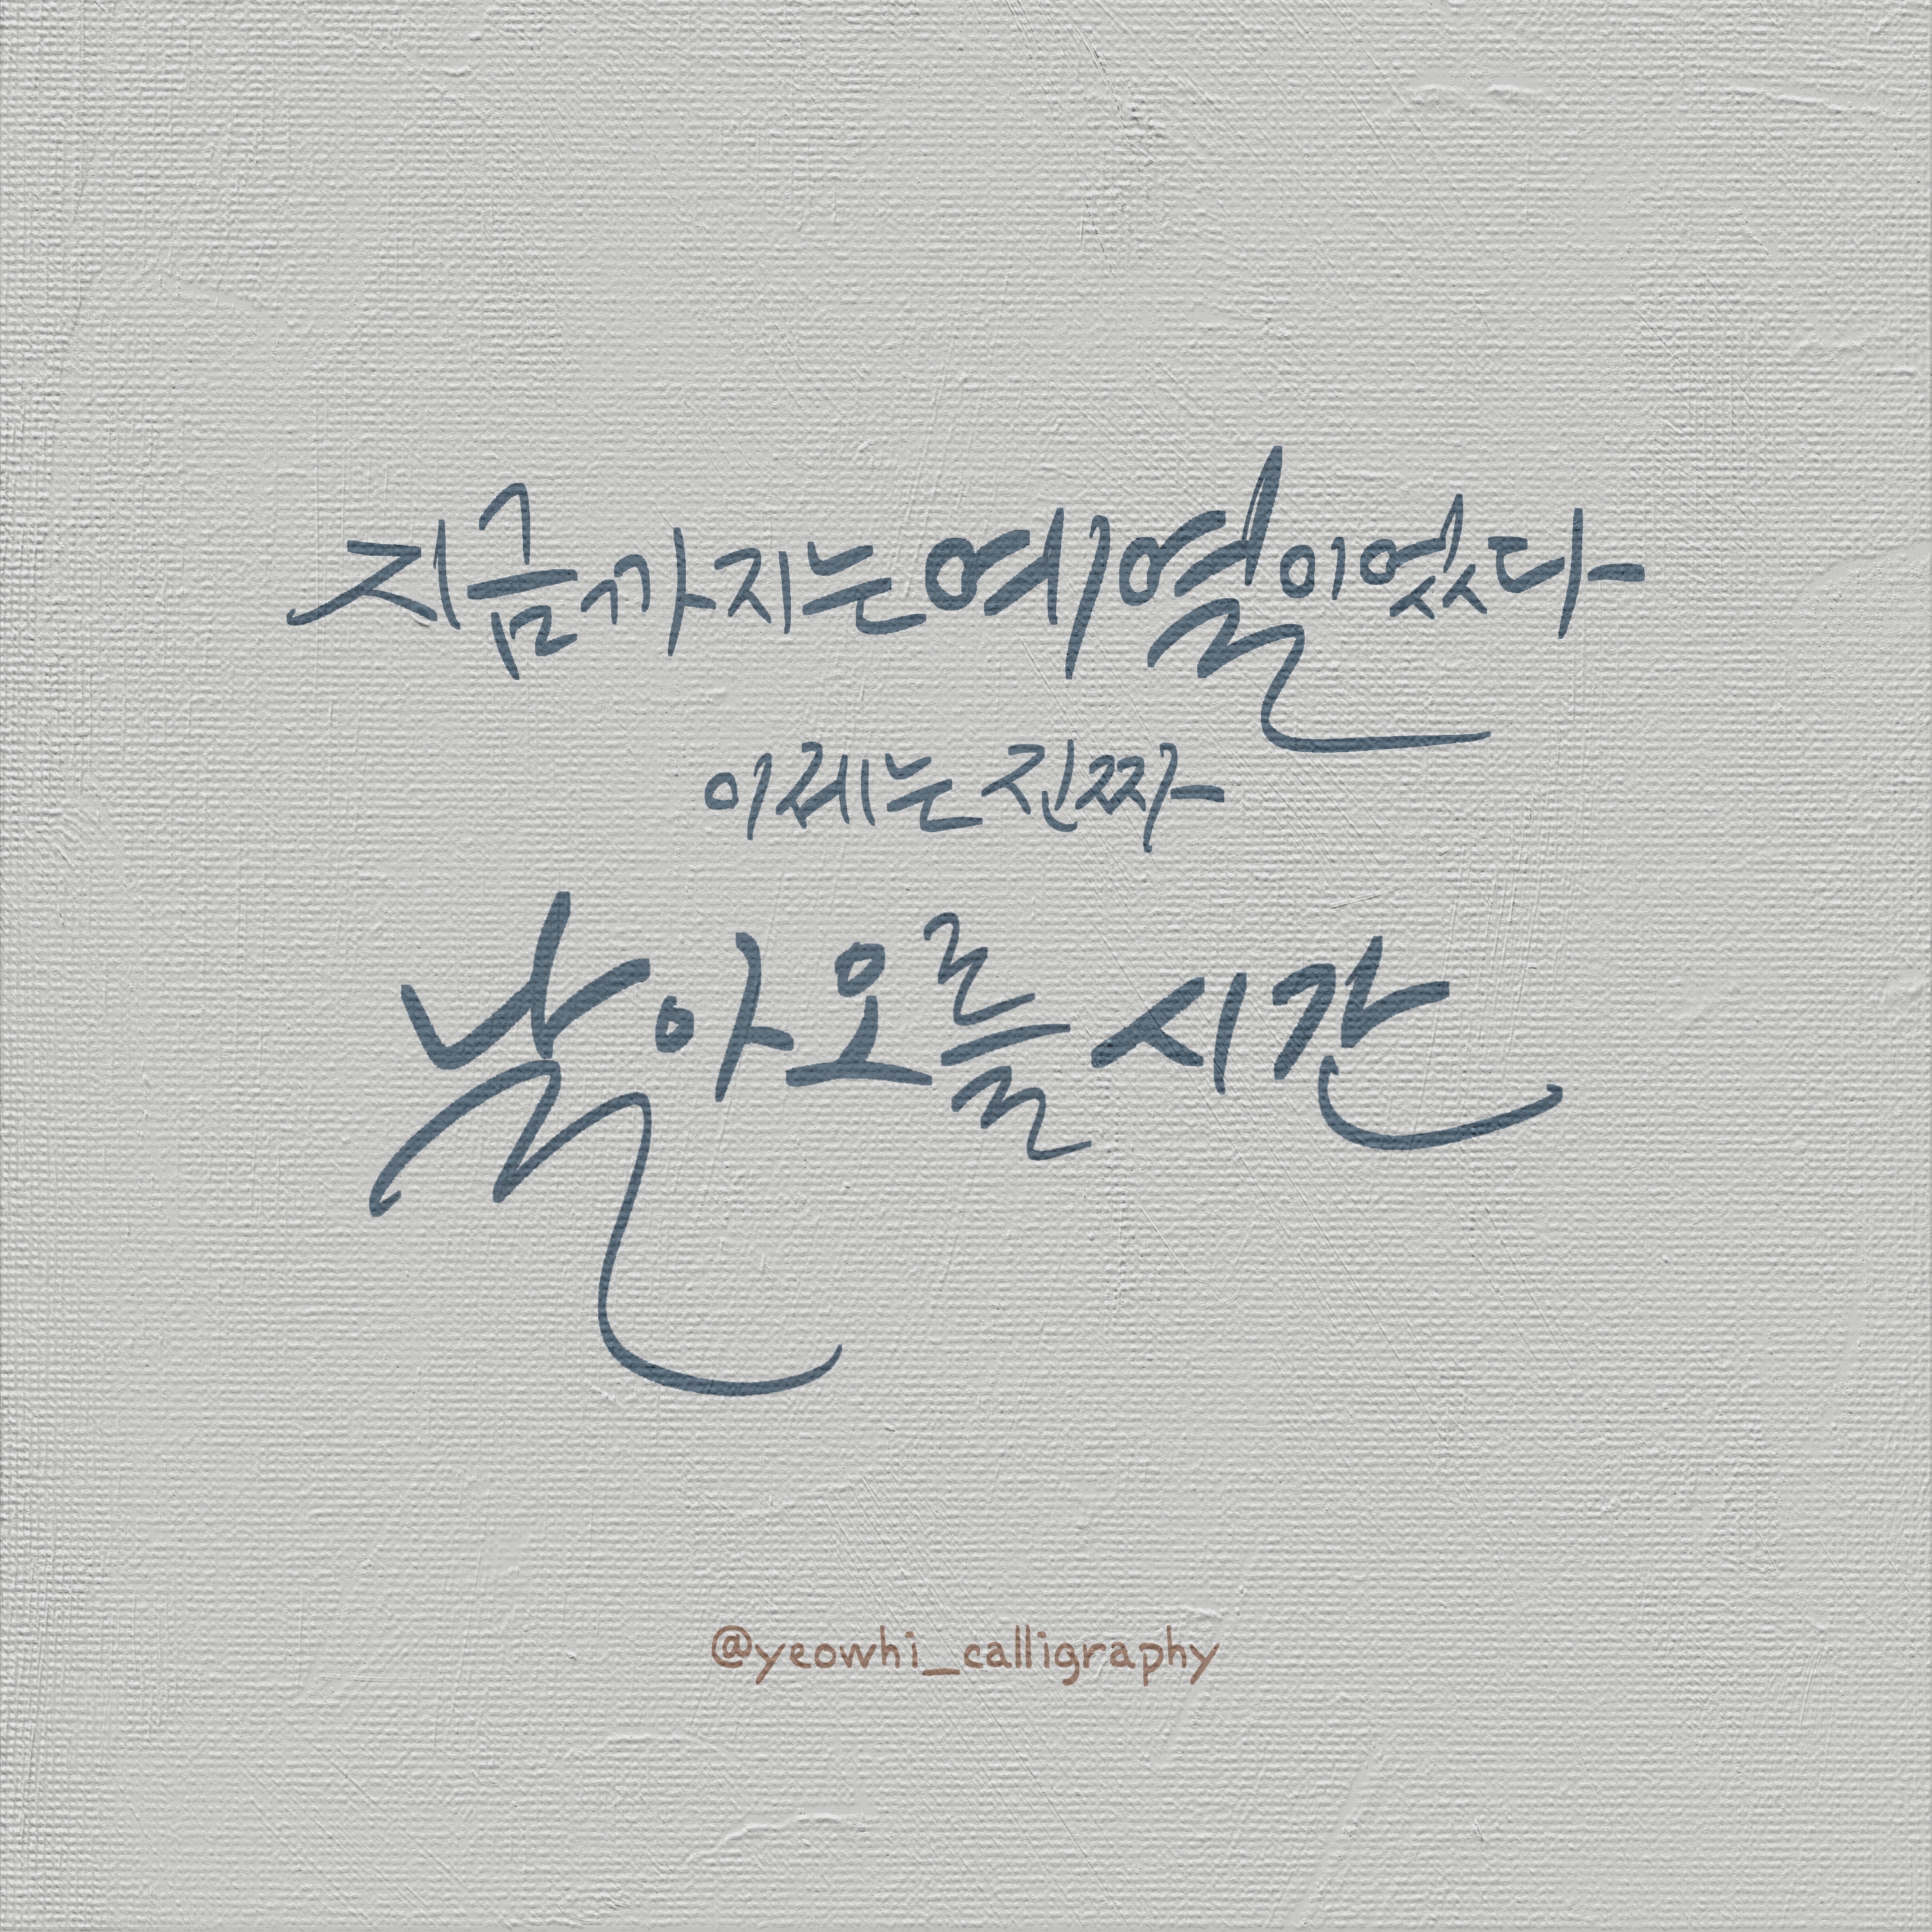 지금까지는 예열이었다
이제는 진짜
날아오를 시간
@yeowhi_calligraphy